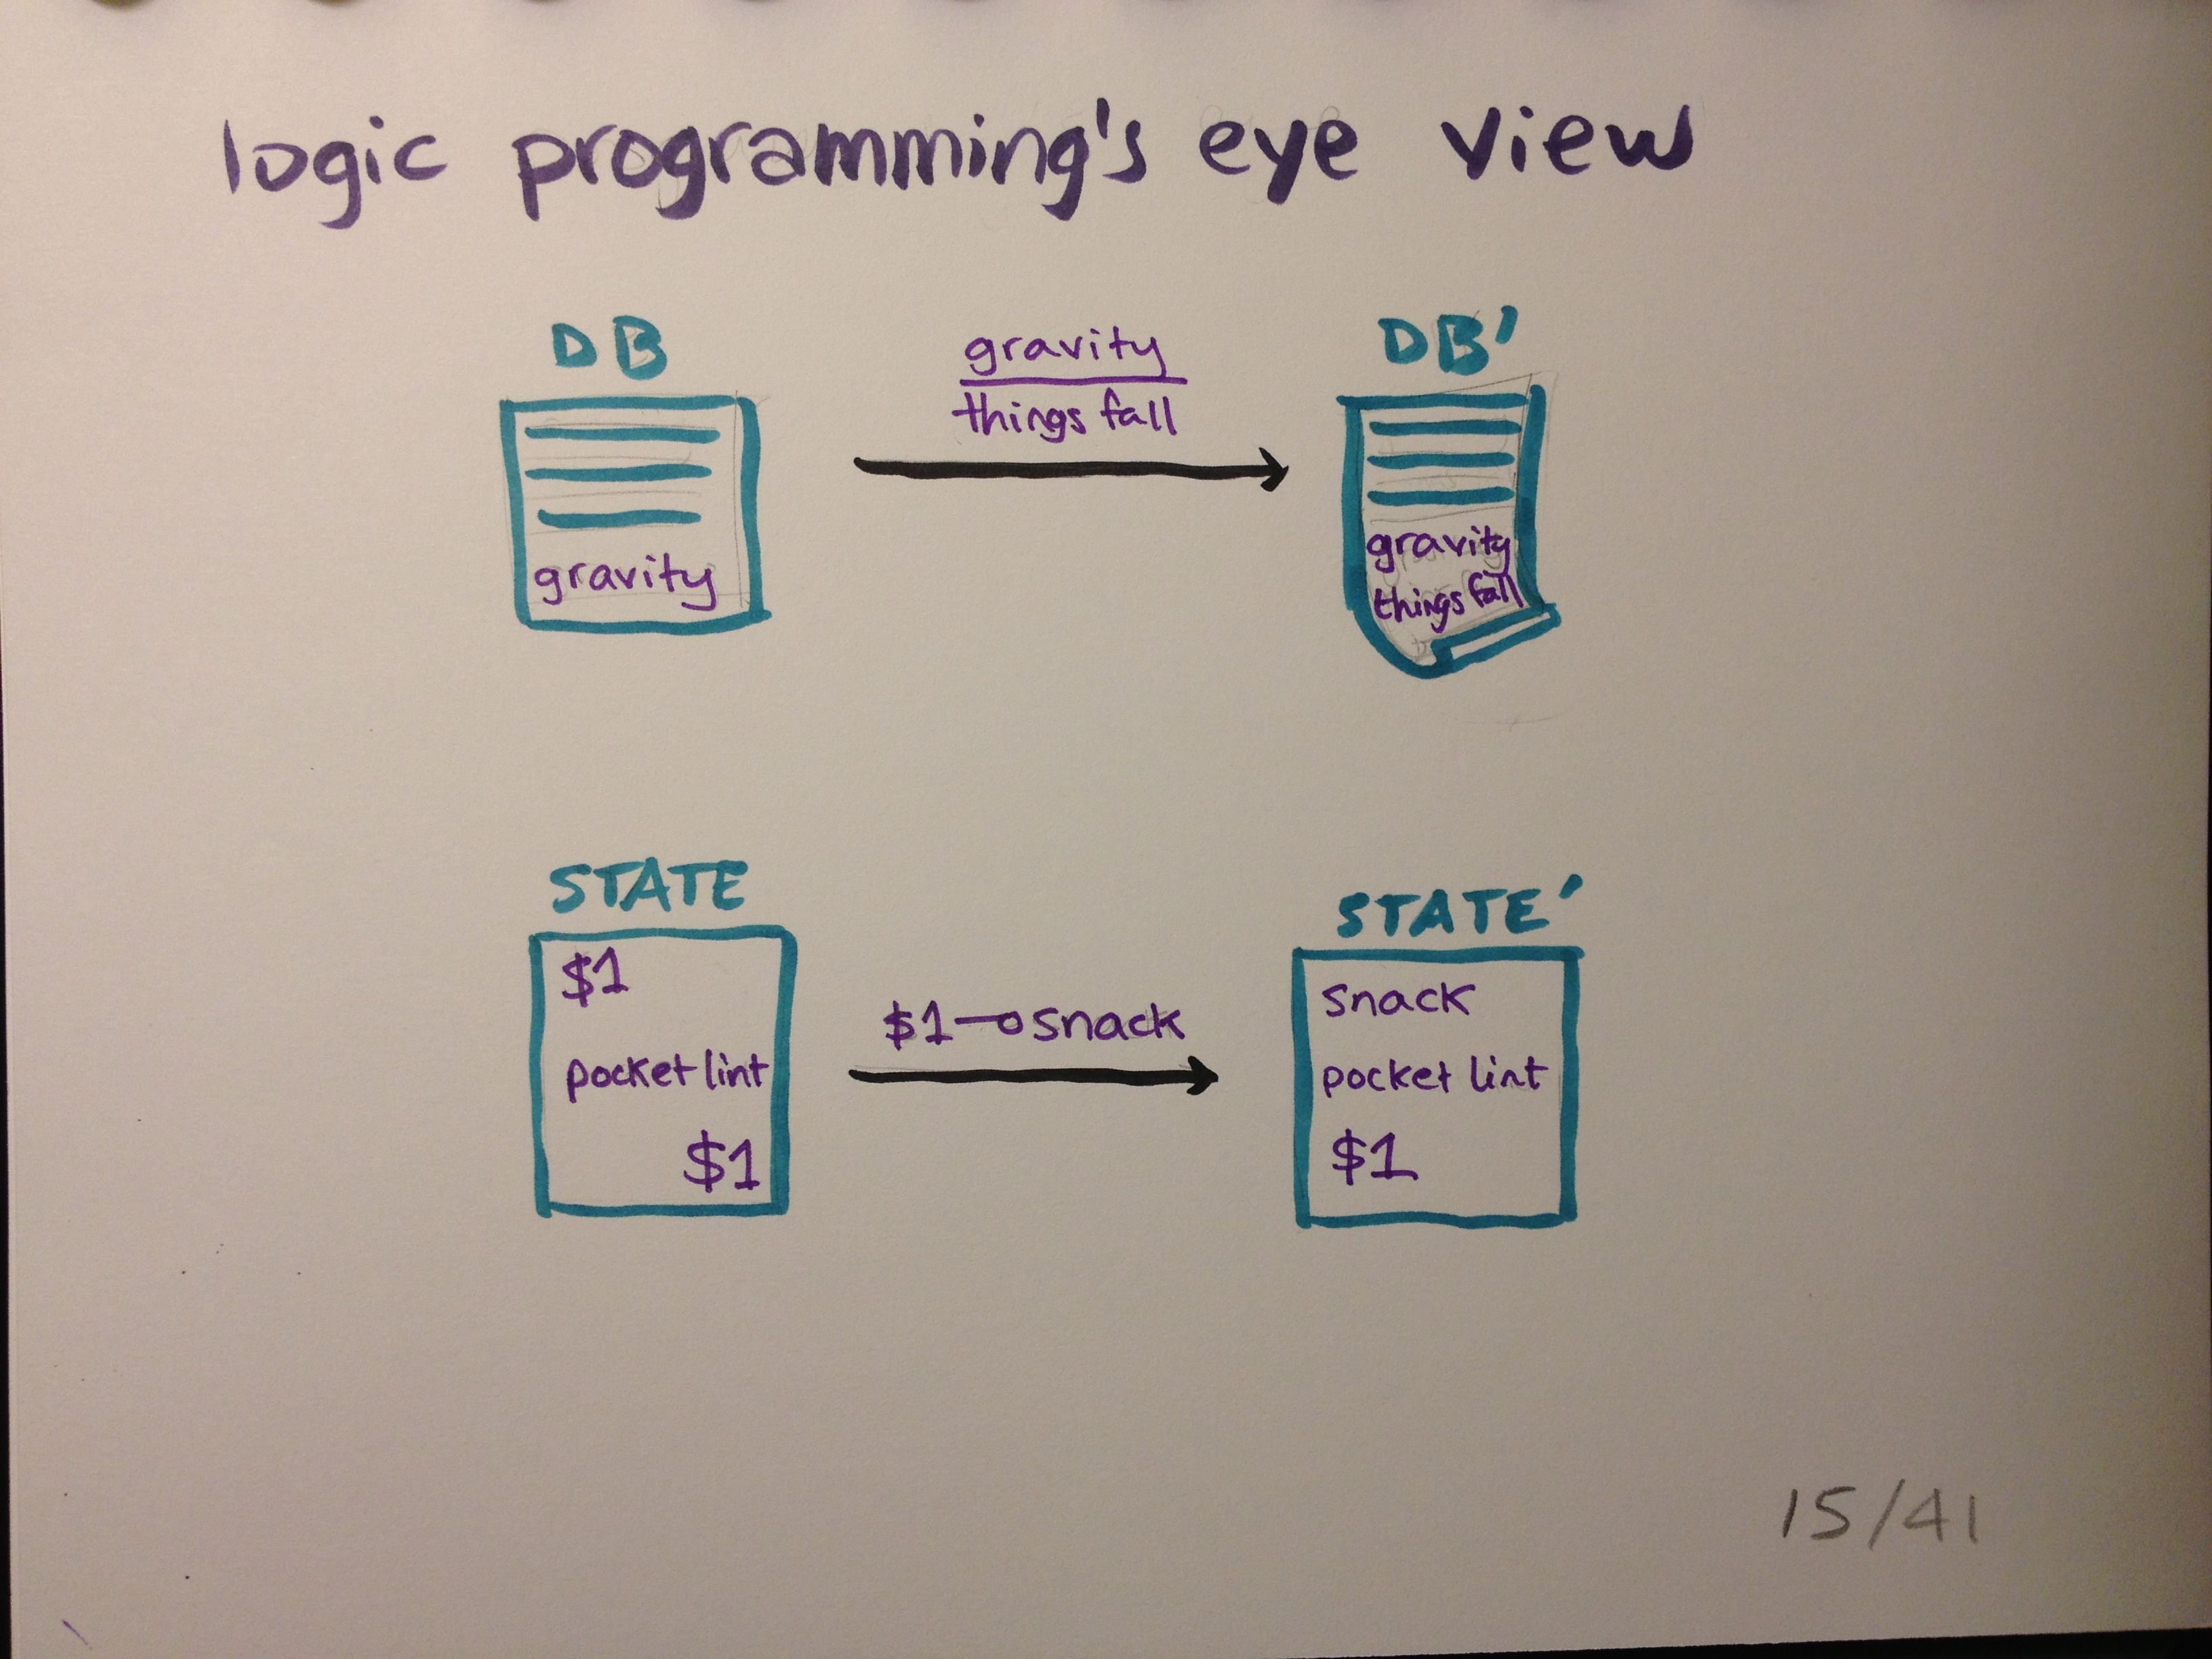 logic programming's eye view
DB
gravity
gravity
things fall
DB'
gravity
things fall
STATE
$1
pocket lint
$1
$1⊸snack
STATE'
snack
pocket lint
$1
15/41